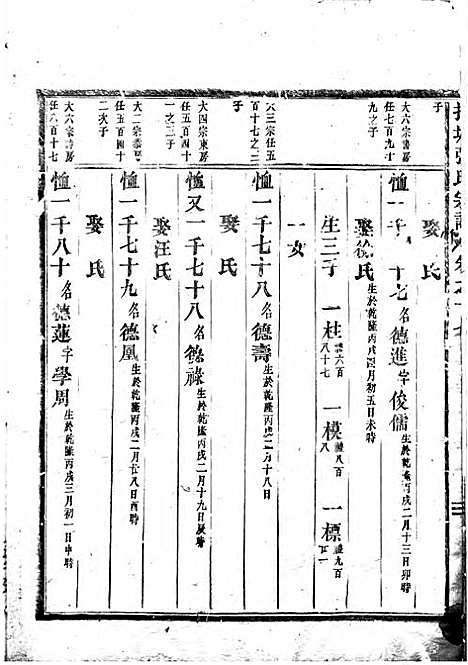 子
娶 氏
大六宗 房
任七百九十
九之子
恤一千 十七 名德進 字俊儒 生於乾隆丙戌二月十三日卯時
娶徐氏 生於乾隆丙戌 月初五日未時
生三子 一柱 六百八十七 一模 八百八 一標 九百
一女
大三宗 房任五
百十七之二
子
恤一千七十八 名德壽 生於乾隆丙戌二月十八日
娶 氏
大四宗東房
任五百四十
一之三子
恤又一千七十八 名德祿 生於乾隆丙戌二月十九日辰時
娶汪氏
大二宗 房
任五百四十
二次子
恤一千七十九 名德凰 生於乾隆丙戌二月廿八日酉時
娶 氏
大六宗 房
任八百十七
恤一千八十 名德蓮 字學周 生於乾隆丙戌三月初一日申時